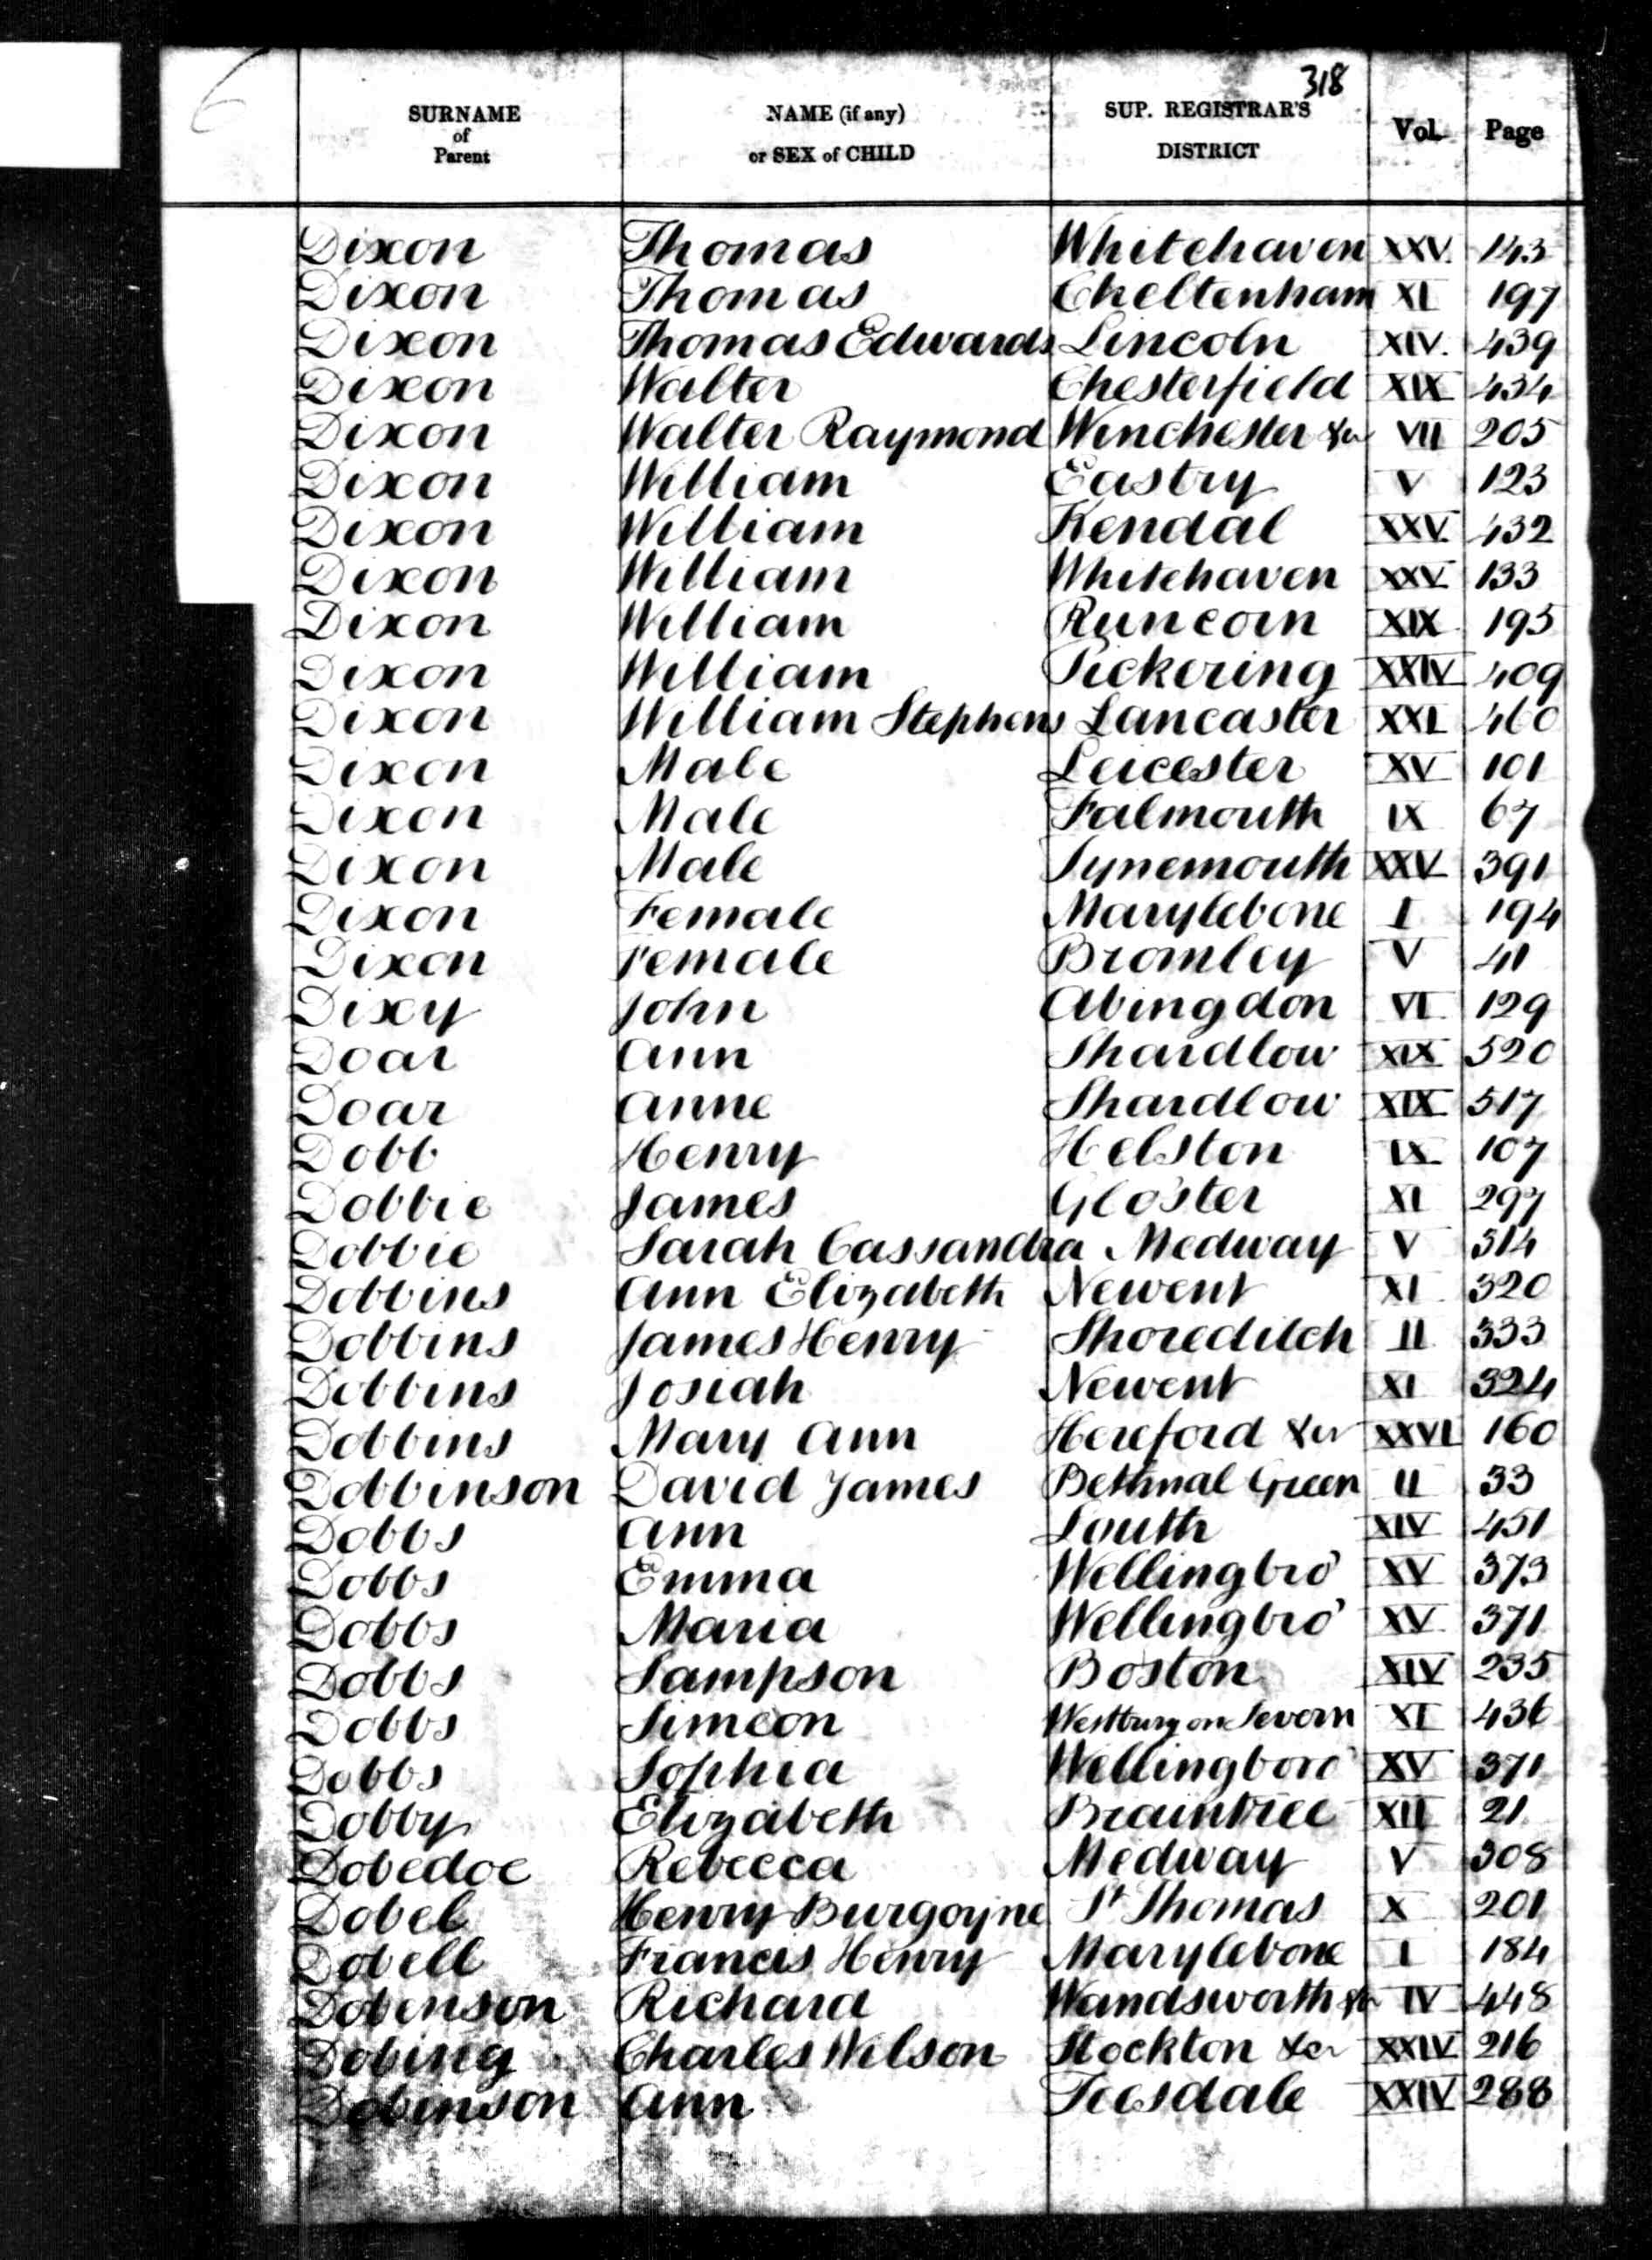 6
318
SURNAME of Parent NAME (if any) or SEX of CHILD SUP. REGISTRAR'S DISTRICT Vol. Page
Dixon Thomas Whitehaven XXV 143
Dixon Thomas Cheltenham XI 197
Dixon Thomas Edwards Lincoln XIV 439
Dixon Walter Chesterfield XIX 434
Dixon Walter Raymond Winchester &c VII 205
Dixon William Eastry V 123
Dixon William Kendal XXV 432
Dixon William Whitehaven XXV 133
Dixon William Runcorn XIX 195
Dixon William Pickering XXIV 409
Dixon William Stephens Lancaster XXI 460
Dixon Male Leicester XV 101
Dixon Male Falmouth IX 67
Dixon Male Tynemouth XXV 391
Dixon Female Marylebone I 194
Dixon Female Bromley V 41
Dixey John Abingdon VI 129
Doar Ann Shardlow XIX 520
Doar Anne Shardlow XIX 517
Dobb Henry Helston IX 107
Dobbie James Glo'ster XI 297
Dobbie Sarah Cassandra Medway V 314
Dobbins Ann Elizabeth Newent XI 320
Dobbins James Henry Shoreditch II 333
Dobbins Josiah Newent XI 324
Dobbins Mary Ann Hereford &c XXVI 160
Dobbinson David James Bethnal Green II 33
Dobbs Ann Louth XIV 451
Dobbs Emma Wellingbro' XV 373
Dobbs Maria Wellingbro' XV 371
Dobbs Sampson Boston XIV 235
Dobbs Simeon Westbury on Severn XI 436
Dobbs Sophia Wellingboro' XV 371
Dobby Elizabeth Braintree XII 21
Dobedoe Rebecca Medway V 308
Dobel Henry Burgoyne St Thomas X 201
Dobell Francis Henry Marylebone I 184
Dobenson Richard Wandsworth &c IV 448
Dobing Charles Wilson Stockton &c XXIV 216
Dobinson Ann Teesdale XXIV 288